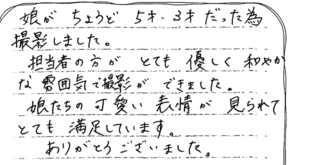 娘が ちょうど 5才・3才 だった為
撮影しました。
担当者の方が とても 優しく 和やか
な 雰囲気で撮影が できました。
娘たちの 可愛い 表情が 見られて
とても 満足しています。
ありがとうございました。